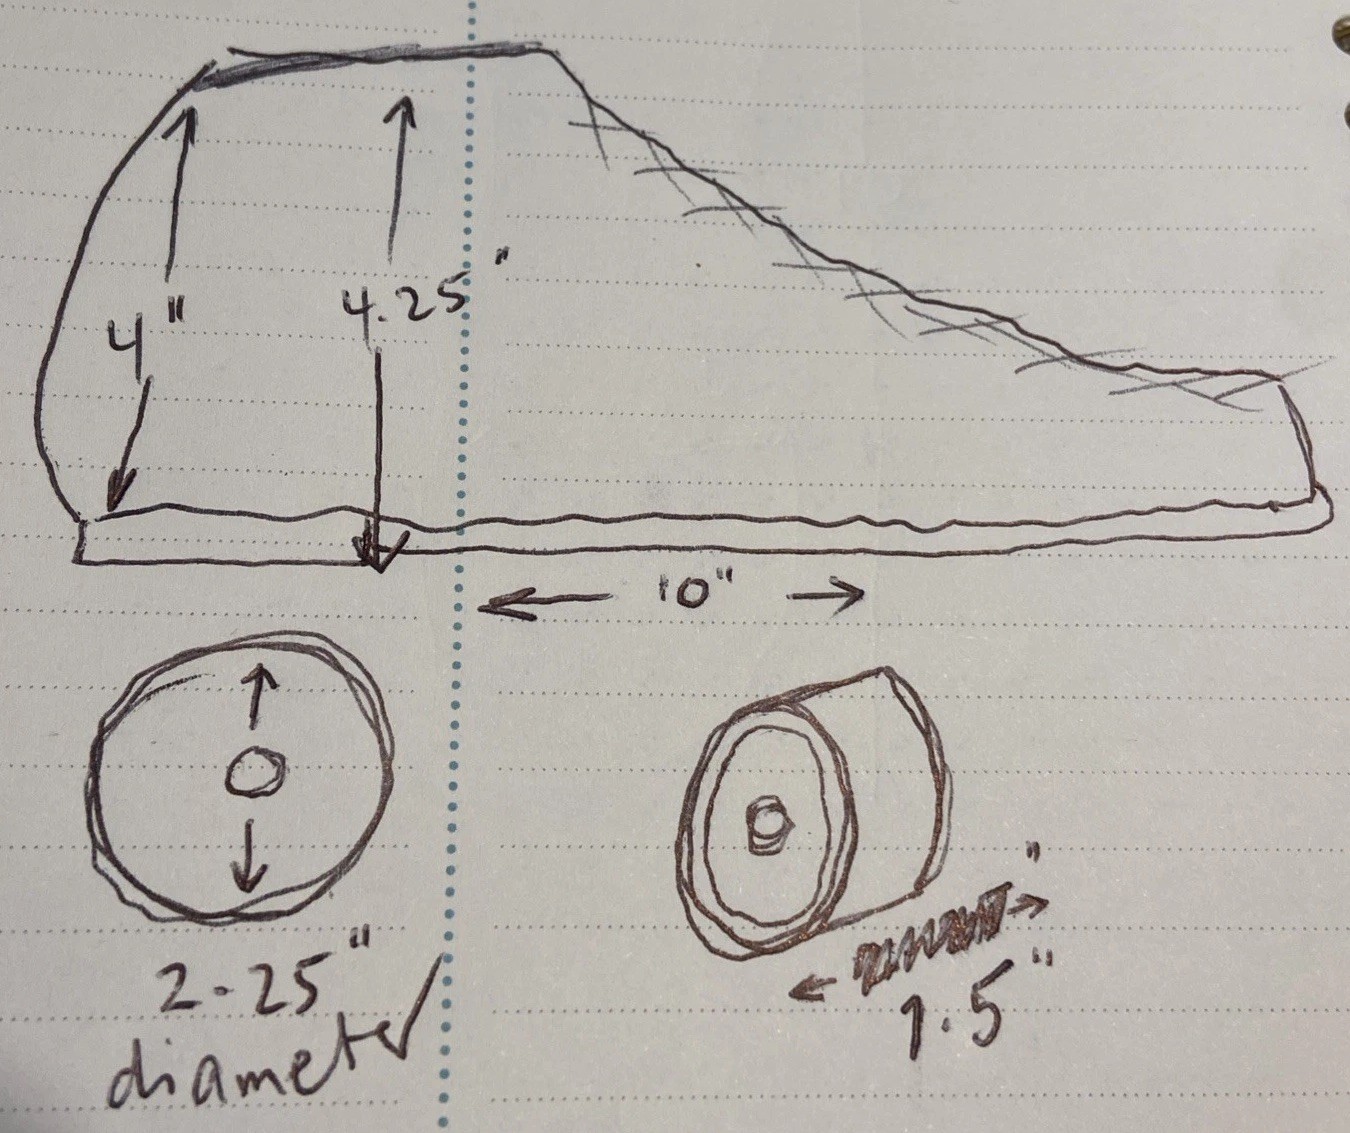 4"
4.25"
10"
2.25"
diameter
1.5"